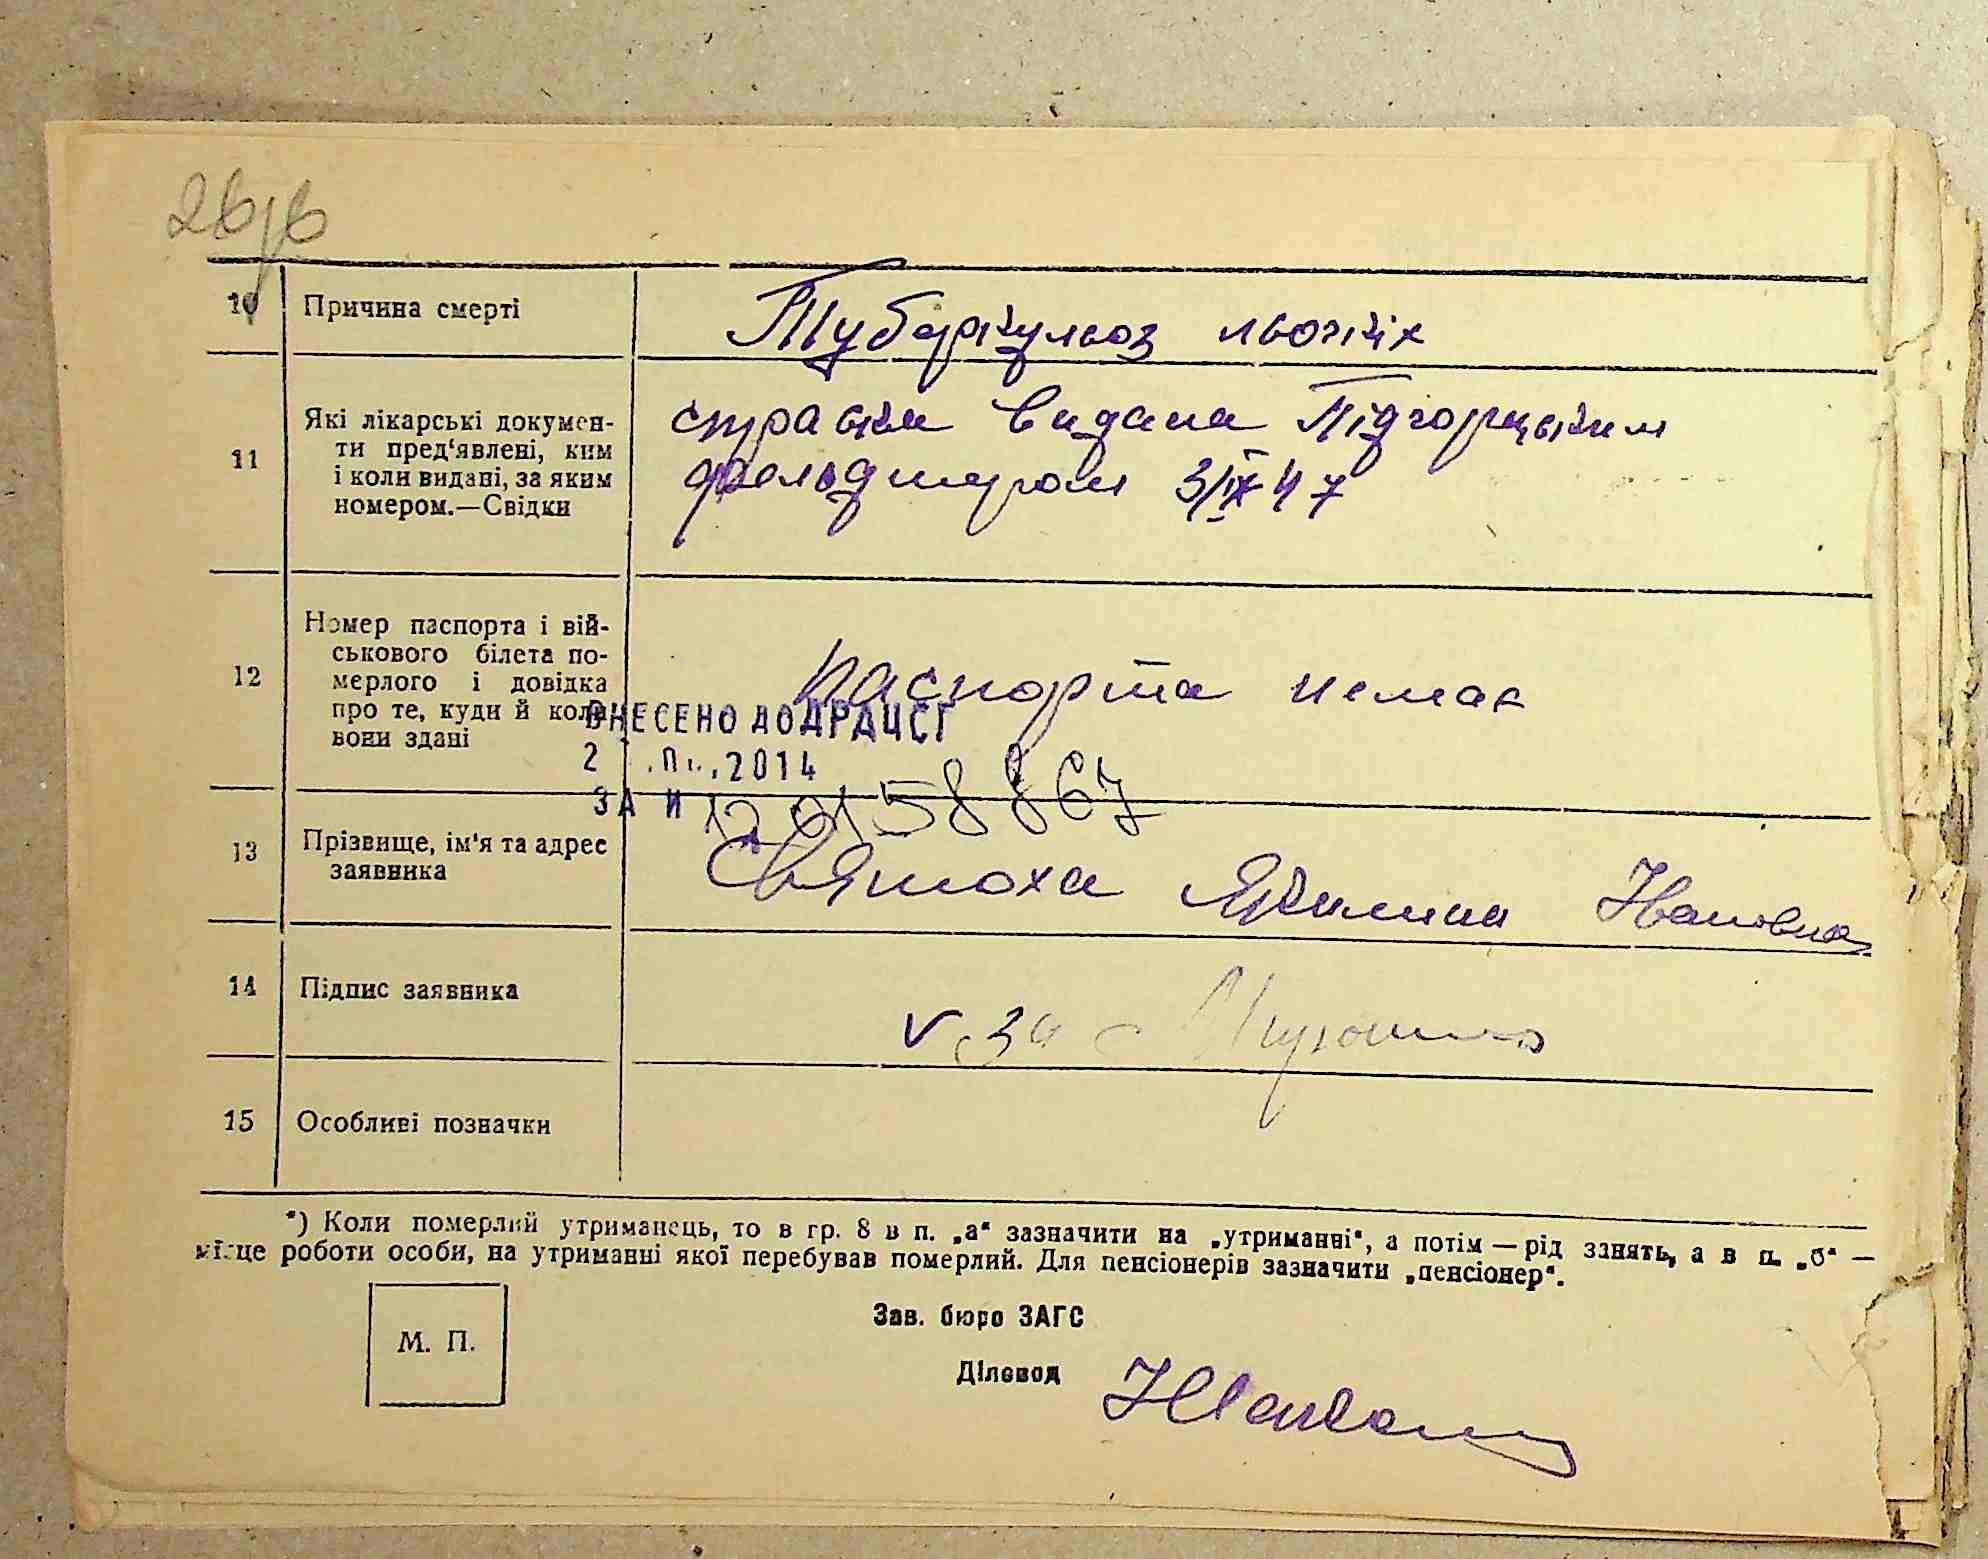 10 Причина смерті Туберкульоз льогких
11 Які лікарські докумен-
ти пред‘явлені, ким
і коли видані, за яким
номером.—Свідки
справка видана Підгорецьким
фельдшером 3/IX 47
12 Номер паспорта і вій-
ськового білета по-
мерлого і довідка
про те, куди й коли
вони здані
паспорта немає
ВНЕСЕНО ДО ДРАЦСГ
2 2014
ЗА И 120158867
13 Прізвище, ім‘я та адрес
заявника
Святоха Якилина Ивановна
14 Підпис заявника
v за
15 Особливі позначки
*) Коли померлий утриманець, то в гр. 8 в п. „а“ зазначити на „утриманні“, а потім — рід занять, а в п. „б“ —
місце роботи особи, на утриманні якої перебував померлий. Для пенсіонерів зазначити „пенсіонер“.
М. П.
Зав. бюро ЗАГС
Діловод